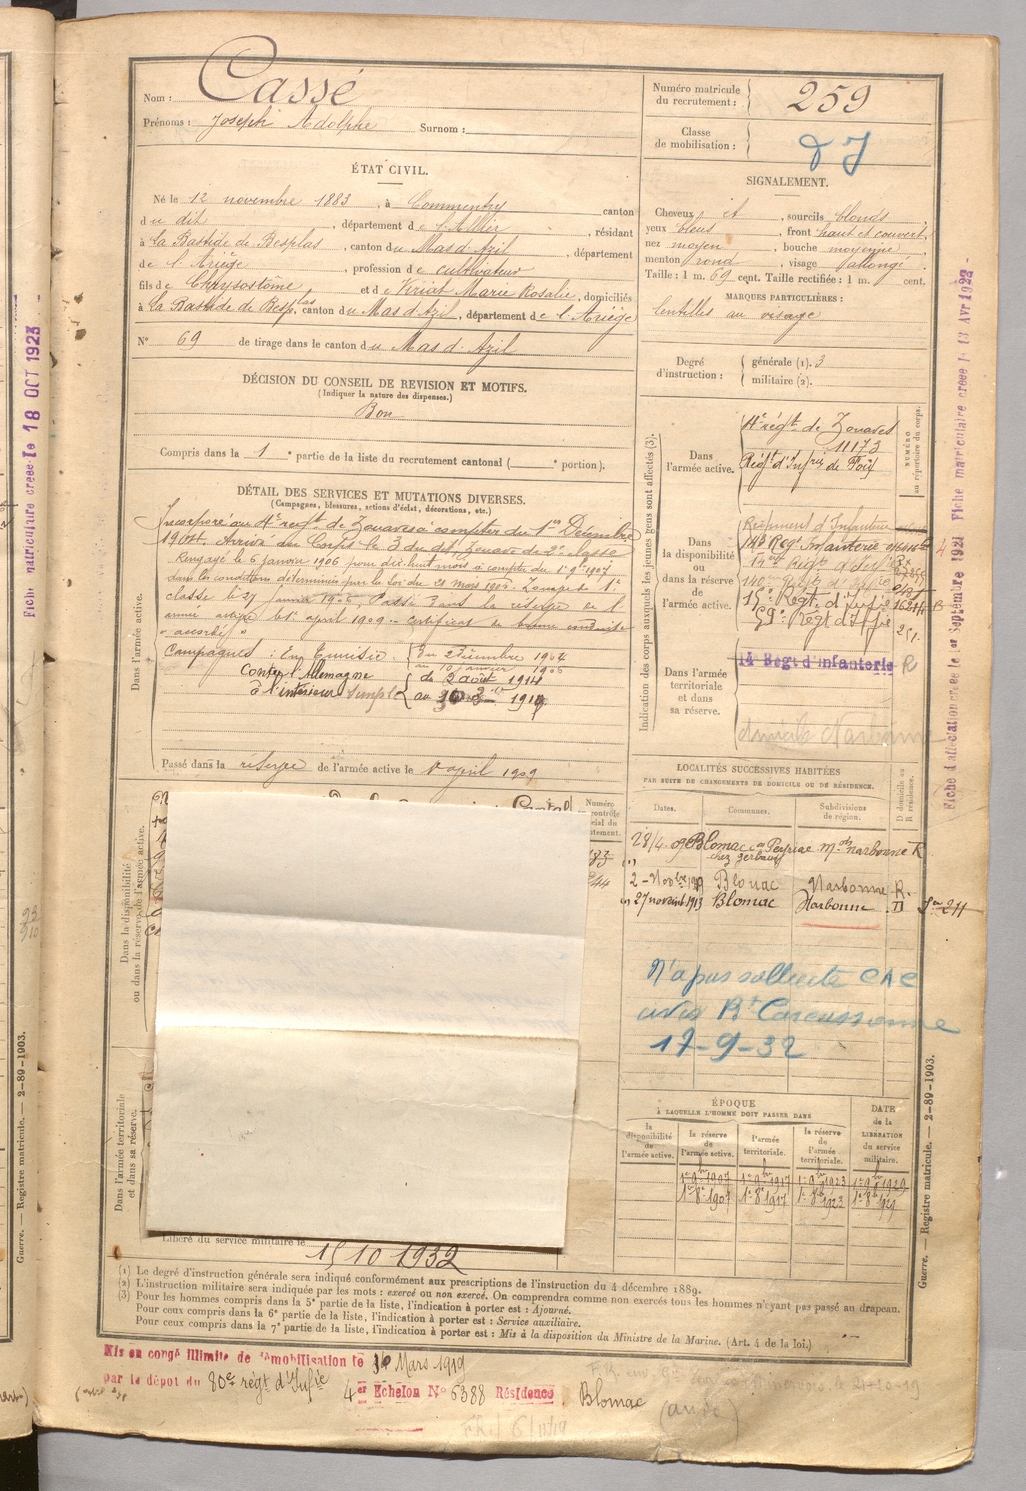 Nom : Cassé
Prénoms : Joseph Adolphe Surnom :
ÉTAT CIVIL.
Né le 12 novembre 1883, à Commentry canton
du dit, département de l'Allier, résidant
à La Bastide de Besplas, canton du Mas d'Azil, département
de l'Ariège, profession de cultivateur
fils de Chrysostôme et de Viriat Marie Rosalie, domiciliés
à La Bastide de Besplas, canton du Mas d'Azil, département de l'Ariège
N° 69 de tirage dans le canton du Mas d'Azil
DÉCISION DU CONSEIL DE REVISION ET MOTIFS.
(Indiquer la nature des dispenses.)
Bon
Compris dans la 1e partie de la liste du recrutement cantonal ( e portion).
DÉTAIL DES SERVICES ET MUTATIONS DIVERSES.
(Campagnes, blessures, actions d'éclat, décorations, etc.)
Dans l'armée active.
Incorporé au 4e régt de Zouaves à compter du 1er Décembre
1904. Arrivé au Corps le 3 du dit, Zouave de 2e classe
Rengagé le 6 janvier 1906 pour dix huit mois à compter du 1er 9bre 1907
dans les conditions déterminées par la loi du 21 mars 1905. Zouave de 1e
classe le 27 janvier 1906. Passé dans la réserve de l'
armée active le 1er april 1909. certificat de bonne conduite
"accordé"
Campagnes : En Tunisie { du 2 Décembre 1904
au 10 janvier 1906
Contre l'Allemagne { du 2 août 1914
à l'intérieur simple au 1919
Passé dans la réserve de l'armée active le 1er april 1909
Dans la disponibilité
ou dans la réserve de l'armée active.
Dans l'armée territoriale
et dans sa réserve.
Libéré du service militaire le 15 10 1932
Numéro matricule
du recrutement : 259
Classe
de mobilisation :
SIGNALEMENT.
Cheveux et, sourcils blonds
yeux bleus, front haut et couvert,
nez moyen, bouche moyenne
menton rond, visage allongé.
Taille : 1 m. 69 cent. Taille rectifiée : 1 m. cent.
MARQUES PARTICULIÈRES :
lentilles au visage
Degré
d'instruction :
générale (1). 3
militaire (2).
Indication des corps auxquels les jeunes gens sont affectés (3).
NUMÉRO
au répertoire du corps.
Dans
l'armée active.
4e régt de Zouaves
11173
Régt d'Infrie de Foix
Dans
la disponibilité
ou
dans la réserve
de
l'armée active.
Régiment d'Infanterie
143 Régt Infanterie
15e Régt d'Infie
59e Régt d'Infie
Dans l'armée
territoriale
et dans
sa réserve.
14 Régt d'Infanterie R
domicile Narbonne
LOCALITÉS SUCCESSIVES HABITÉES
PAR SUITE DE CHANGEMENTS DE DOMICILE OU DE RÉSIDENCE.
Dates. Communes. Subdivisions de région. D domicile ou R résidence.
28/4.09 Blomac con Peyriac Mois Narbonne R
Blomac Narbonne R.
27 novembre 1913 Blomac Narbonne D
N'a pas sollicité CAC
avis Bt Carcassonne
17-9-32
ÉPOQUE
À LAQUELLE L'HOMME DOIT PASSER DANS
DATE
de la
LIBÉRATION
du service
militaire.
la disponibilité de l'armée active. la réserve de l'armée active. l'armée territoriale. la réserve de l'armée territoriale.
1er 9bre 1907 1er 9bre 1917 1er 9bre 1923 1er 9bre 1929
1er 8bre 1907 1er 8bre 1917 1er 8bre 1923 1er 8bre 1929
(1) Le degré d'instruction générale sera indiqué conformément aux prescriptions de l'instruction du 4 décembre 1889.
(2) L'instruction militaire sera indiquée par les mots : exercé ou non exercé. On comprendra comme non exercés tous les hommes n'ayant pas passé au drapeau.
(3) Pour les hommes compris dans la 5e partie de la liste, l'indication à porter est : Ajourné.
Pour ceux compris dans la 6e partie de la liste, l'indication à porter est : Service auxiliaire.
Pour ceux compris dans la 7e partie de la liste, l'indication à porter est : Mis à la disposition du Ministre de la Marine. (Art. 4 de la loi.)
Mis en congé illimité de démobilisation le 16 Mars 1919
par le dépôt du 80e régt d'Infie 4er Echelon N° 5388 Résidence Blomac
(aude)
Guerre. — Registre matricule. — 2-89-1903.
Guerre. — Registre matricule. — 2-89-1903.
Fiche matriculaire créée le 18 OCT 1923
Fiche d'affectation créée le 1er Septembre 1921 Fiche matriculaire créée le 13 Avr 1923